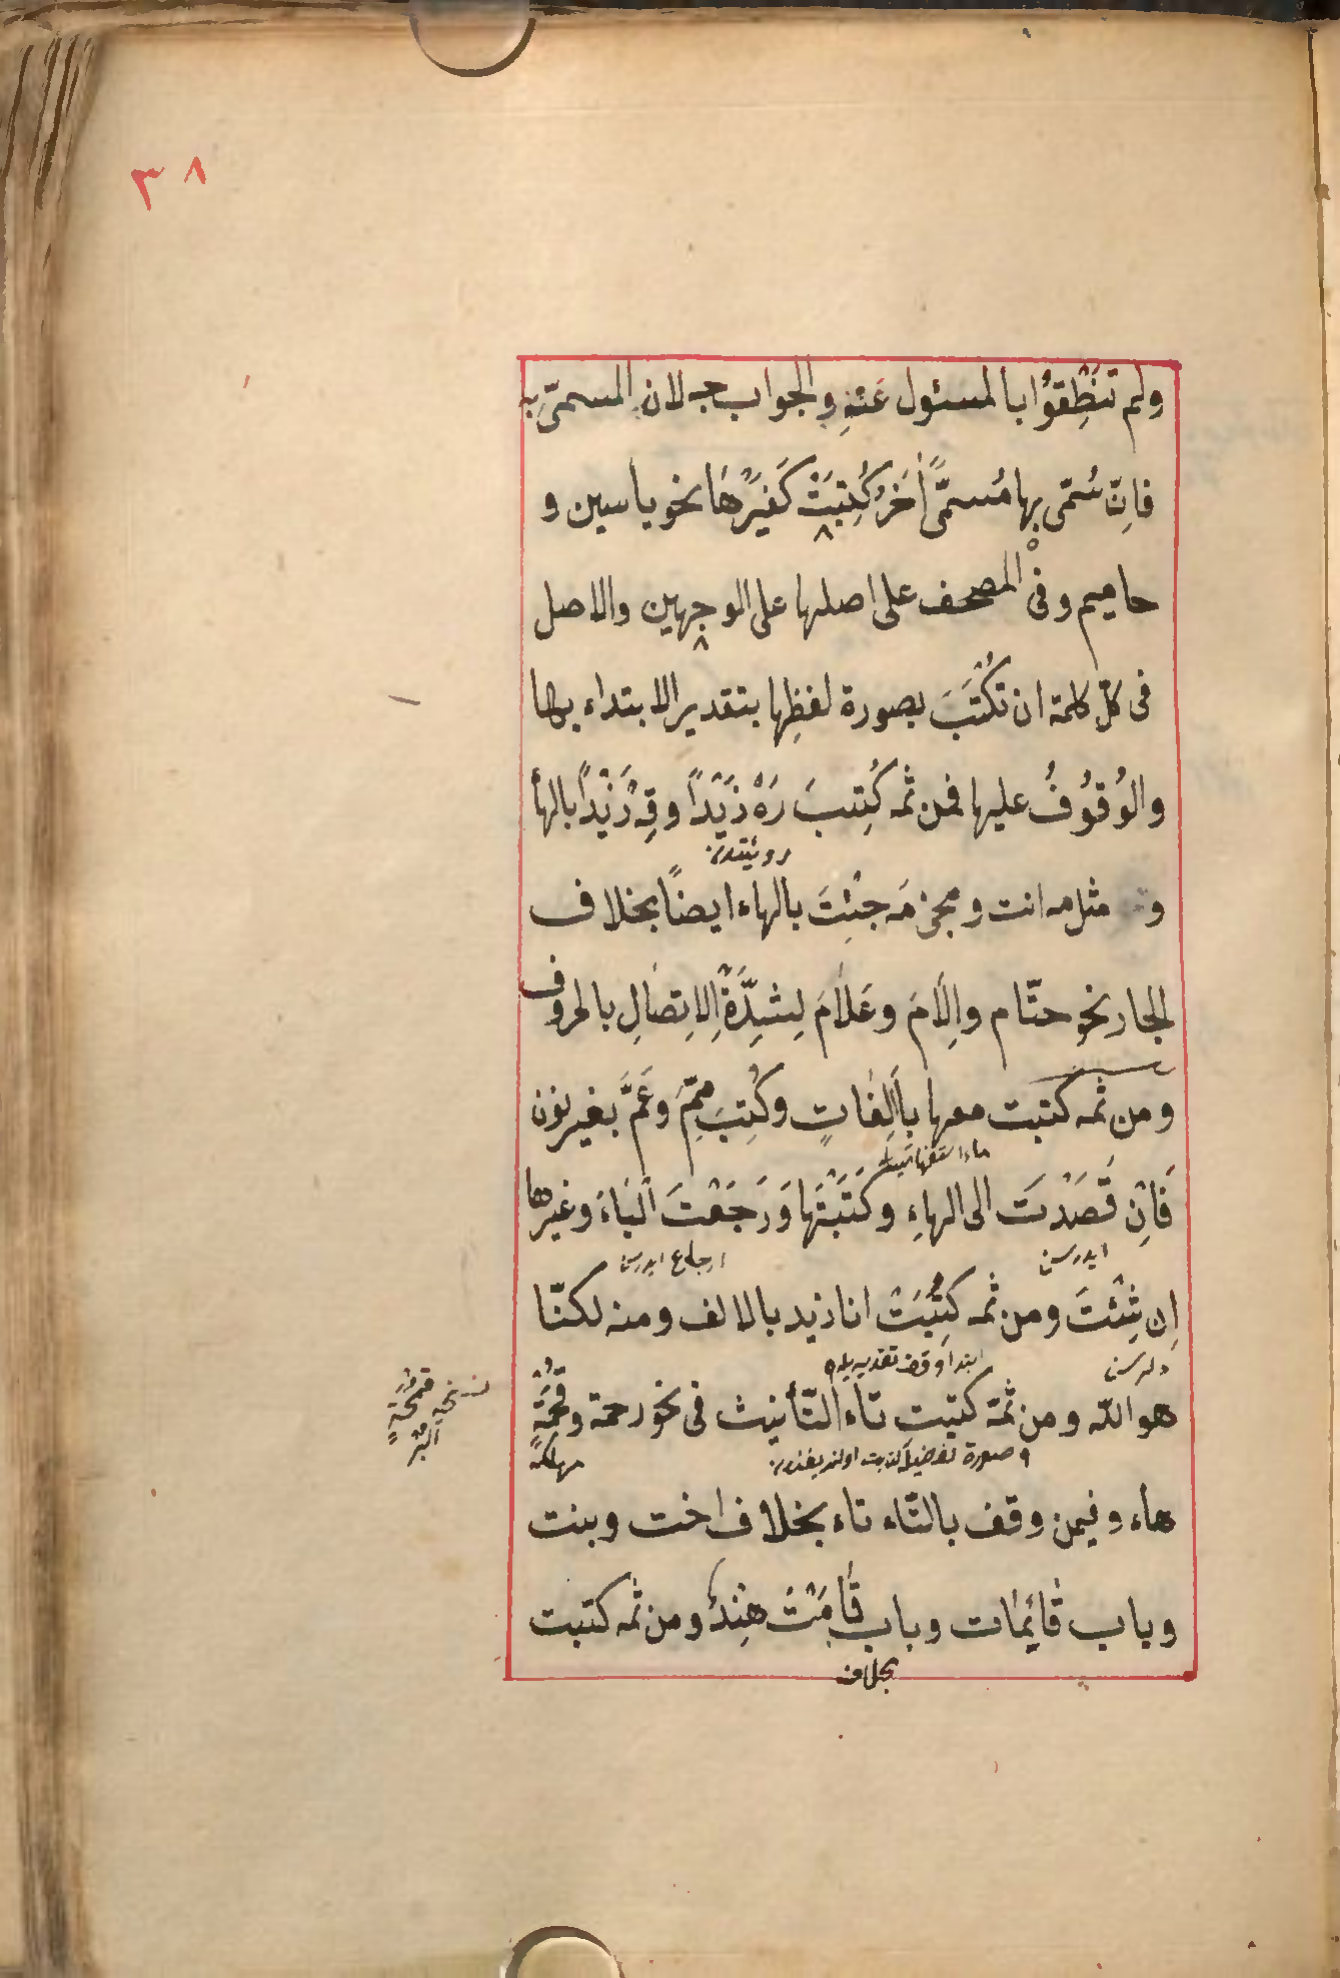 ٣٨
ولم تَنْطِقُوا بالمسئول عَنْهِ والجواب جه لان المسمّى به
فاِنّ سُمّى بها مُسمّىً اٰخَرُ كُتِبَتْ كَغَيْرِهَا نحو ياسين و
حاميم وفى المصحف على اصلها على الوجهين والاصل
فى كلّ كلمة ان تُكْتَبَ بصورة لفظِها بتقدير الابتداء بها
والوُقوُفُ عليها فمن ثمه كُتِبَ رَهْ زَيْدًا وقِهْ زَيْدًا بالهأ
و مثل مه انت ومجئ مَه جِئْتَ بالهاء ايضًا بخلاف
الجار نحو حتّام واِلَامَ وعَلَامَ لِشِدَّةِ الاِتِصَالِ بالحروف
ومن ثمه كتبت معها بِاَلِفَاتٍ وكُتِبَ مِمَّ وعَمَّ بغير نون
ماء استفهاميه
فَاِنْ قَصَدْتَ الى الهاءِ وكَتَبْتَها وَرَجَعْتَ اليَاءَ وغيرها
ايدرسن
ارجاع ايدرسن
اِن شِئْتَ ومن ثمه كُتِبَتْ انا زيد بالالف ومنه لكنّا
دلرسن
ابتدا وقف تقديريله
هو اللّه ومن ثمّة كتبت تاء التّأنيث فى نحو رحمة وقُحْمَةٌ
نسخه
قمحة
مهلكةً
هاء وفيمن وقف بالتّاء تاء بخلاف اخت وبنت
وباب قَائِمَات وباب قَامَتْ هِنْدُ ومن ثمه كتبت
بخلاف